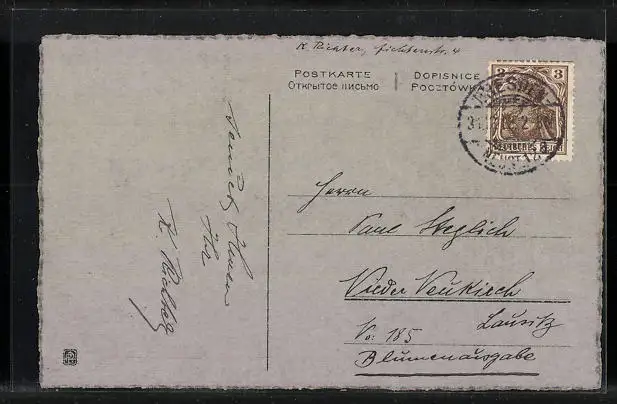 K. Richter, Fichtenstr. 4
POSTKARTE
Открытое письмо
DOPISNICE
POCZTÓWKA
3 3
DRESDEN
NEUST.
DEUTSCHES REICH
Ihr
K. Richter
Herrn
Paul Steglich
Nieder Neukirch
Lausitz
No: 185
Blumenausgabe